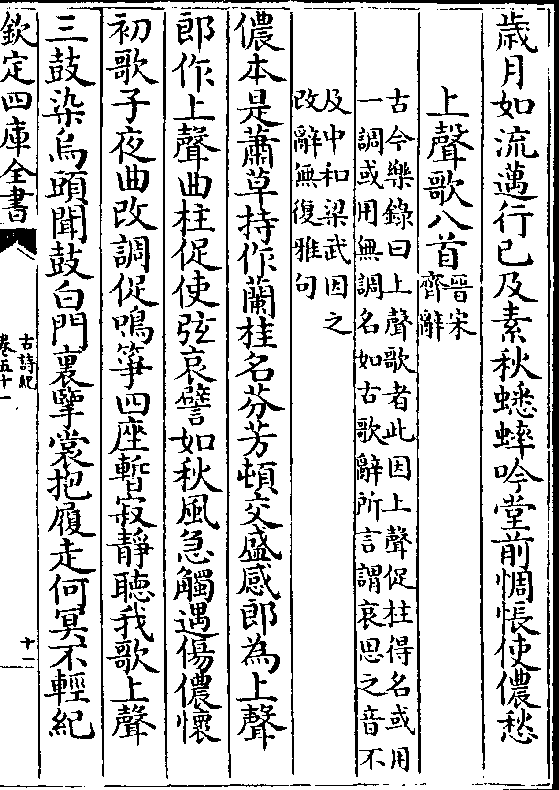 歳月如流邁行已及素秋蟋蟀吟堂前惆悵使儂愁
上聲歌八首晉宋
齊辭
古今樂錄曰上聲歌者此因上聲促柱得名或用
一調或用無調名如古歌辭所言謂哀思之音不
及中和梁武因之
改辭無復雅句
儂本是蕭草持作蘭桂名芬芳頓交盛感郎為上聲
郎作上聲曲柱促使弦哀譬如秋風急觸遇傷儂懷
初歌子夜曲改調促鳴箏四座暫寂靜聽我歌上聲
三鼓染烏頭聞鼓白門裏擥裳抱履走何冥不輕紀
欽定四庫全書
古詩紀
卷五十一
十二